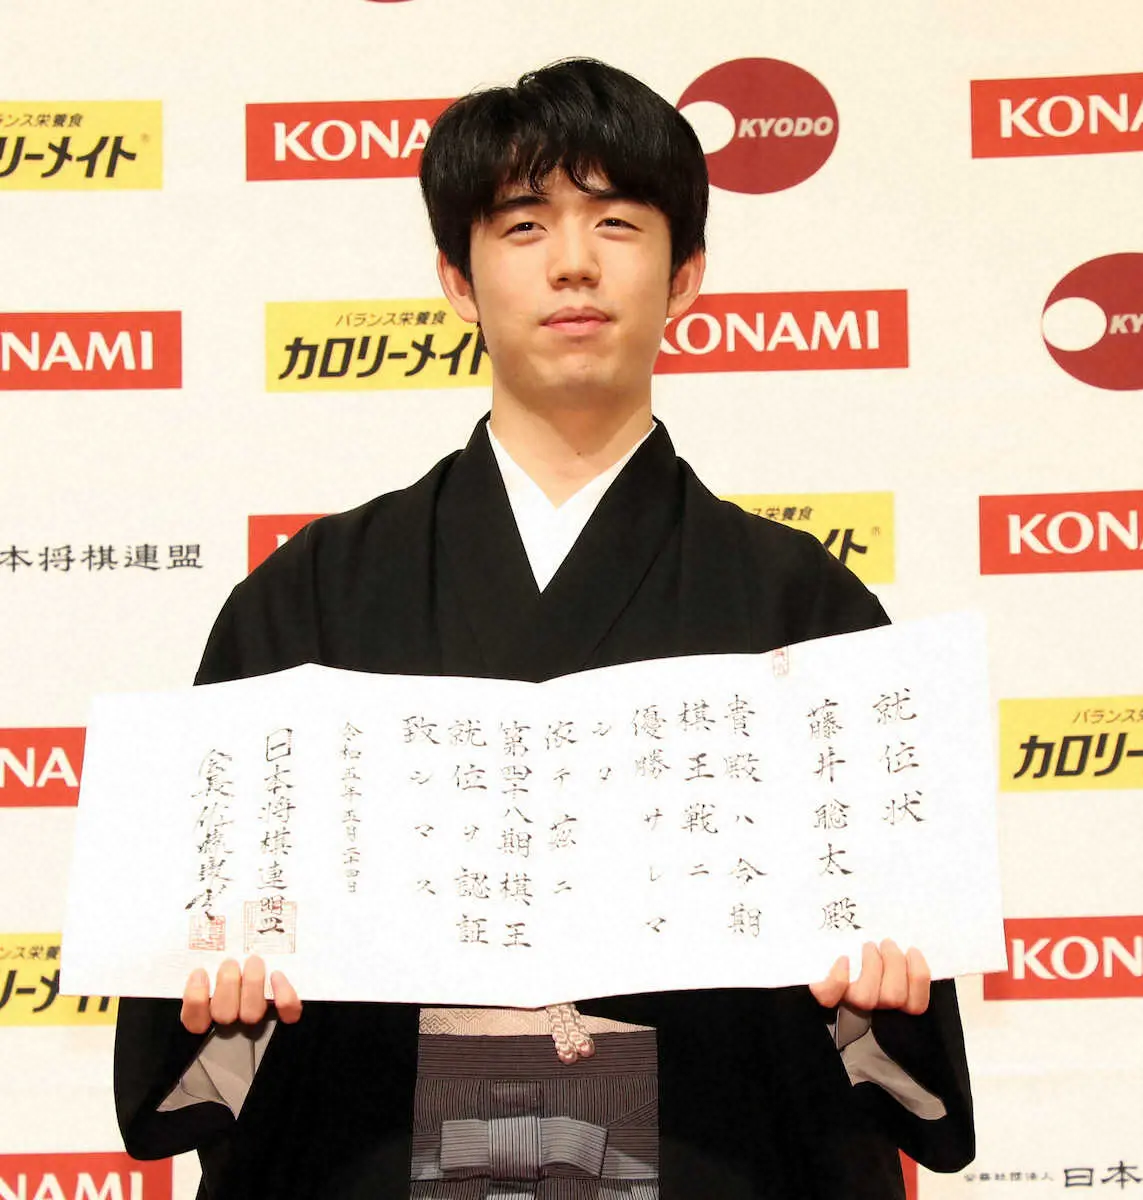 KYODO
KONA
KONA
ランス栄養食
リーメイト
KYO
バランス栄養食
カロリーメイト
KONAMI
NAMI
ス栄養食
イト
KON
本将棋連盟
就位状
藤井聡太殿
貴殿ハ今期
棋王戦ニ
優勝サレマ
シタ
依テ茲ニ
第四十八期棋王
就位ヲ認証
致シマス
令和五年五月二十四日
日本将棋連盟
会長佐藤康光
バランス栄養食
カロリー
NA
KON
ンス栄養食
リーメイト
NAMI
公益社団法人 日本